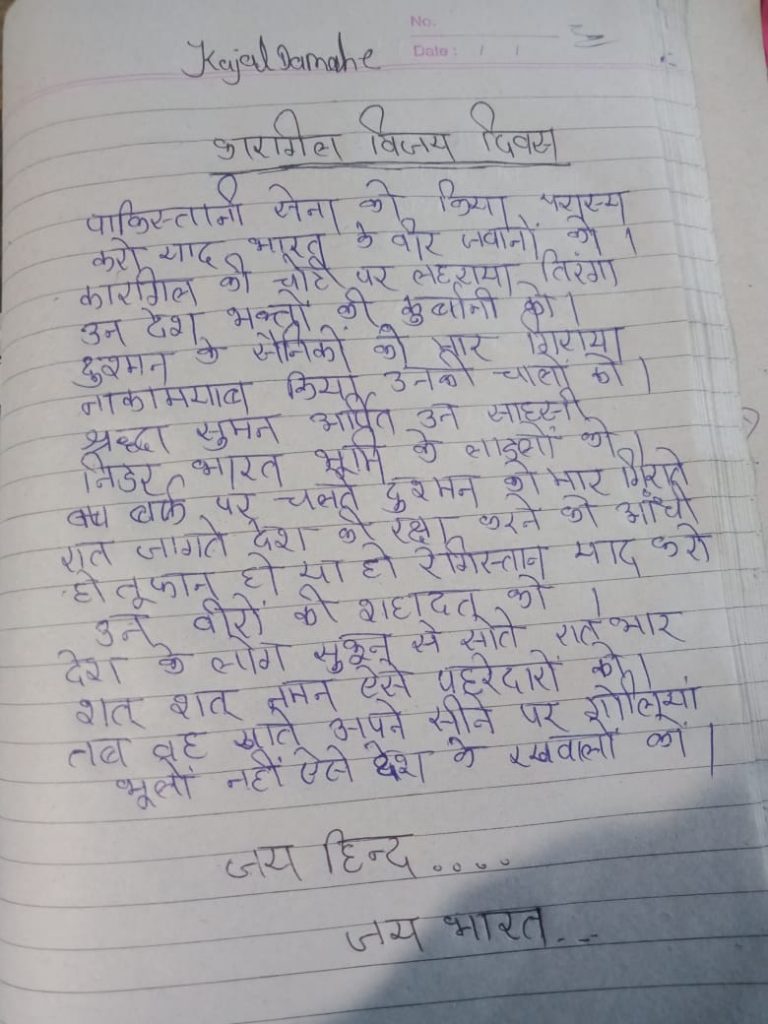 No.
Date : / /
Kajal Damahe
कारगिल विजय दिवस
पाकिस्तानी सेना को किया परास्य
करो याद भारत के वीर जवानों को ।
कारगिल की चोटि पर लहराया तिरंगा
उन देश भक्तों की कुर्बानी को ।
दुश्मन के सैनिकों को मार गिराया
नाकामयाब किया उनकी चालों को ।
श्रद्धा सुमन अर्पित उन साहसी
निडर भारत भूमि के लाडलों को ।
बर्फ पर चलते दुश्मन को मार गिराते
रात जागते देश की रक्षा करने को आँधी
हो तूफान हो या हो रेगिस्तान याद करो
उन वीरों की शहादत को ।
देश के लोग सुकून से सोते रात भार
शत शत नमन ऐसे पहरेदारों को ।
तब वह खाते अपने सीने पर गोलियां
भूलों नहीं ऐसे देश के रखवालों को ।
जय हिन्द ....
जय भारत...